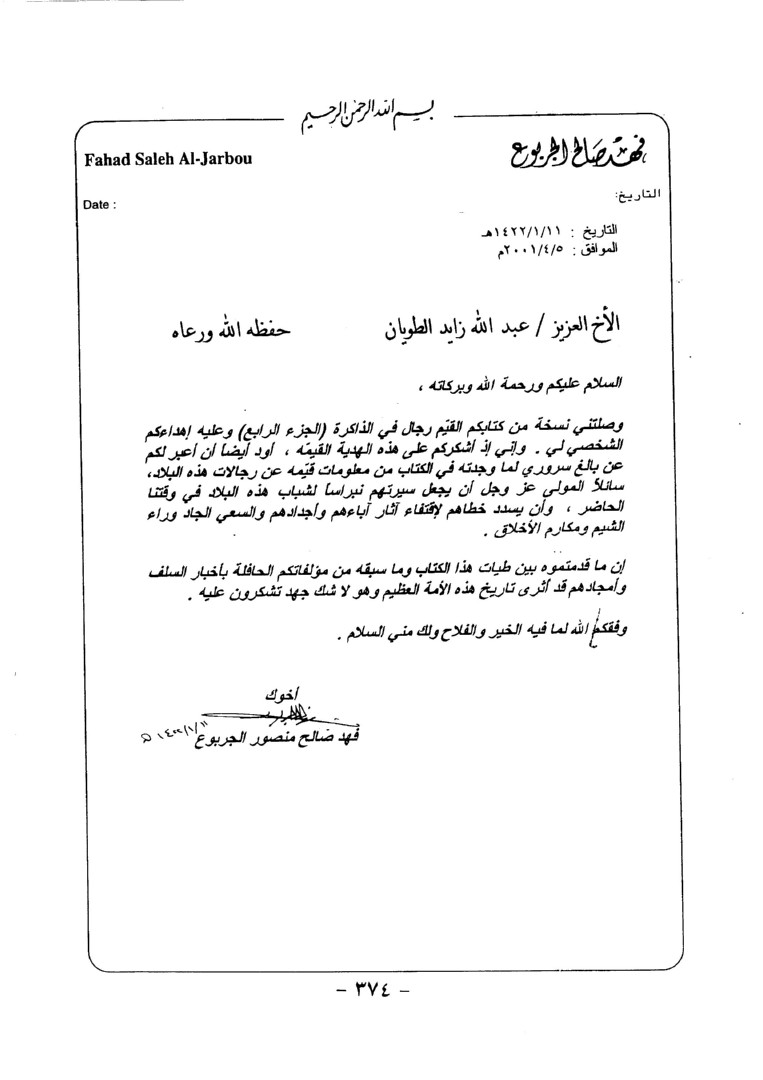 بسم الله الرحمن الرحيم
Fahad Saleh Al-Jarbou
فهد صالح الجربوع
التاريخ:
Date :
التاريخ : ١٤٢٢/١/١١هـ
الموافق : ٢٠٠١/٤/٥م
الأخ العزيز / عبد الله زايد الطويان حفظه الله ورعاه
السلام عليكم ورحمة الله وبركاته ،
وصلتني نسخة من كتابكم القيّم رجال في الذاكرة (الجزء الرابع) وعليه إهداءكم
الشخصي لي . وإني إذ أشكركم على هذه الهدية القيمّه ، أود أيضاً أن أعبر لكم
عن بالغ سروري لما وجدته في الكتاب من معلومات قيّمه عن رجالات هذه البلاد،
سائلاً المولى عز وجل أن يجعل سيرتهم نبراساً لشباب هذه البلاد في وقتنا
الحاضر ، وأن يسدد خطاهم لإقتفاء آثار آباءهم وأجدادهم والسعي الجاد وراء
الشيم ومكارم الأخلاق .
إن ما قدمتموه بين طيات هذا الكتاب وما سبقه من مؤلفاتكم الحافلة بأخبار السلف
وأمجادهم قد أثرى تاريخ هذه الأمة العظيم وهو لا شك جهد تشكرون عليه .
وفقكم الله لما فيه الخير والفلاح ولك مني السلام .
أخوك
فهد صالح منصور الجربوع ١٤٢٢/١/١١ هـ
- ٣٧٤ -